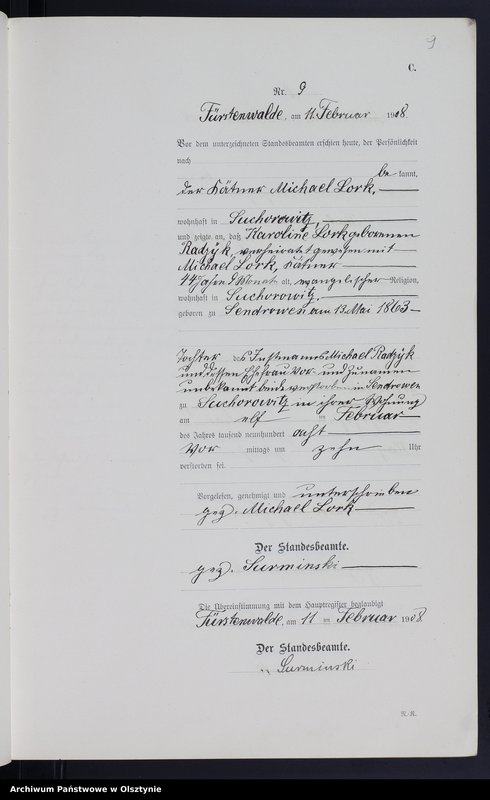 9
C.
Nr. 9
Fürstenwalde, am 11. Februar 1908.
Vor dem unterzeichneten Standesbeamten erschien heute, der Persönlichkeit
nach
be kannt,
der Kätner Michael Lork,
wohnhaft in Suchorowitz,
und zeigte an, daß Karoline Lork geborenen
Radzÿk, verheiratet gewesen mit
Michael Lork, Kätner
44 Jahre 9 Monate alt, evangelischer Religion,
wohnhaft in Suchorowitz,
geboren zu Sendrowen am 13. Mai 1863
Tochter des Instmanns Michael Radzÿk
und dessen Ehefrau Vor- und Zunamen
unbekannt beide verstorben in Sendrowen
zu Suchorowitz in ihrer Wohnung
am elf ten Februar
des Jahres tausend neunhundert acht
Vor mittags um zehn Uhr
verstorben sei.
Vorgelesen, genehmigt und unterschrieben
gez. Michael Lork
Der Standesbeamte.
gez. Surminski
Die Übereinstimmung mit dem Hauptregister beglaubigt
Fürstenwalde, am 11 ten Februar 1908.
Der Standesbeamte.
Surminski
Archiwum Państwowe w Olsztynie